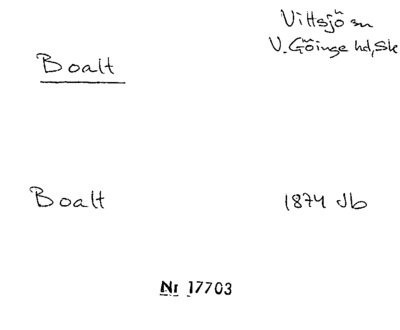 Vittsjö sn
V. Göinge hd, Sk
Boalt
Boalt 1874 Jb
Nr 17703